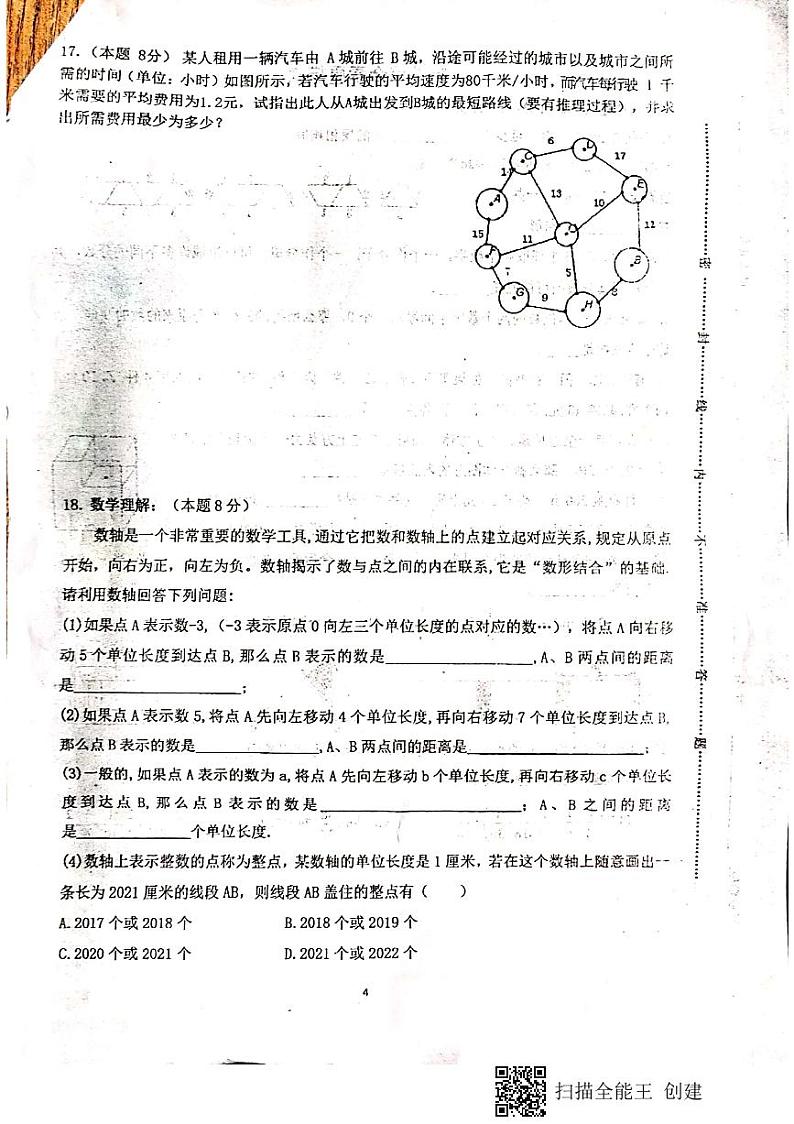 17.（本题 8分） 某人租用一辆汽车由 A城前往 B城，沿途可能经过的城市以及城市之间所
需的时间（单位：小时）如图所示，若汽车行驶的平均速度为80千米/小时，而汽车每行驶 1 千
米需要的平均费用为1.2元，试指出此人从A城出发到B城的最短路线（要有推理过程），并求
出所需费用最少为多少？
6
17
C
D
E
A
13
10
15
11
O
12
F
B
7
5
G
9
H
18. 数学理解：（本题8分）
数轴是一个非常重要的数学工具,通过它把数和数轴上的点建立起对应关系,规定从原点
开始，向右为正，向左为负。数轴揭示了数与点之间的内在联系,它是“数形结合”的基础.
请利用数轴回答下列问题:
(1)如果点A表示数-3,（-3表示原点O向左三个单位长度的点对应的数…），将点A向右移
动5个单位长度到达点B,那么点B表示的数是________,A、B两点间的距离
是________;
(2)如果点A表示数5,将点A先向左移动4个单位长度,再向右移动7个单位长度到达点B,
那么点B表示的数是________,A、B两点间的距离是________;
(3)一般的,如果点A表示的数为a,将点A先向左移动b个单位长度,再向右移动c个单位长
度到达点B,那么点B表示的数是________;A、B之间的距离
是________个单位长度.
(4)数轴上表示整数的点称为整点，某数轴的单位长度是1厘米，若在这个数轴上随意画出一
条长为2021厘米的线段AB，则线段AB盖住的整点有（　　）
A.2017个或2018个 B.2018个或2019个
C.2020个或2021个 D.2021个或2022个
4
密 封 线 内 不 准 答 题
扫描全能王 创建